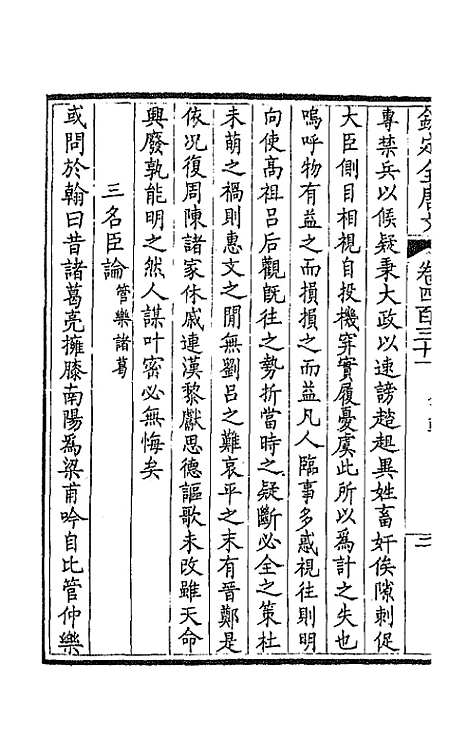 欽定全唐文 卷四百三十一 三
專禁兵以候疑秉大政以速謗趑趄異姓畜奸俟隙刺促
大臣側目相視自投機穽實履憂虞此所以為計之失也
嗚呼物有益之而損損之而益凡人臨事多惑視往則明
向使高祖呂后觀旣往之勢折當時之疑斷必全之策杜
未萌之禍則惠文之間無劉呂之難哀平之末有晉鄭是
依况復周陳諸家休戚連漢黎獻思德謳歌未改雖天命
興廢孰能明之然人謀叶密必無悔矣
三名臣論管樂諸葛
或問於翰曰昔諸葛亮擁膝南陽為梁甫吟自比管仲樂